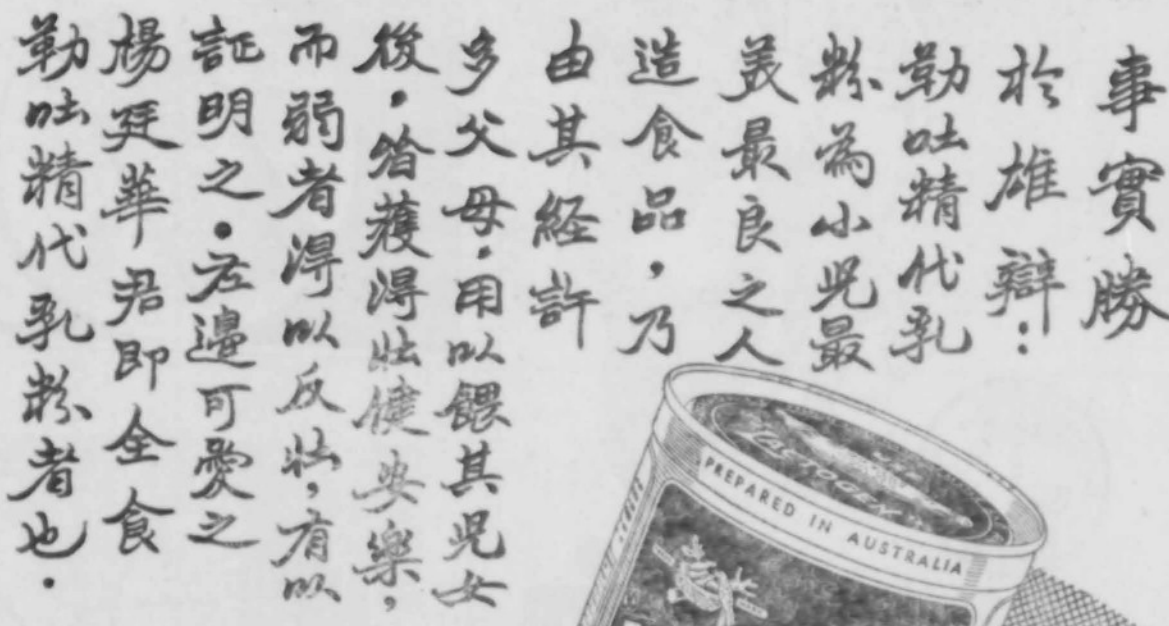 事實勝
於雄辯：
勒吐精代乳
粉為小児最
美最良之人
造食品，乃
由其經許
多父母，用以餵其児女
後，皆獲得壯健安樂，
而弱者得以反壯，有以
証明之。左邊可愛之
楊廷華君即全食
勒吐精代乳粉者也。
LACTOGEN
PREPARED IN AUSTRALIA